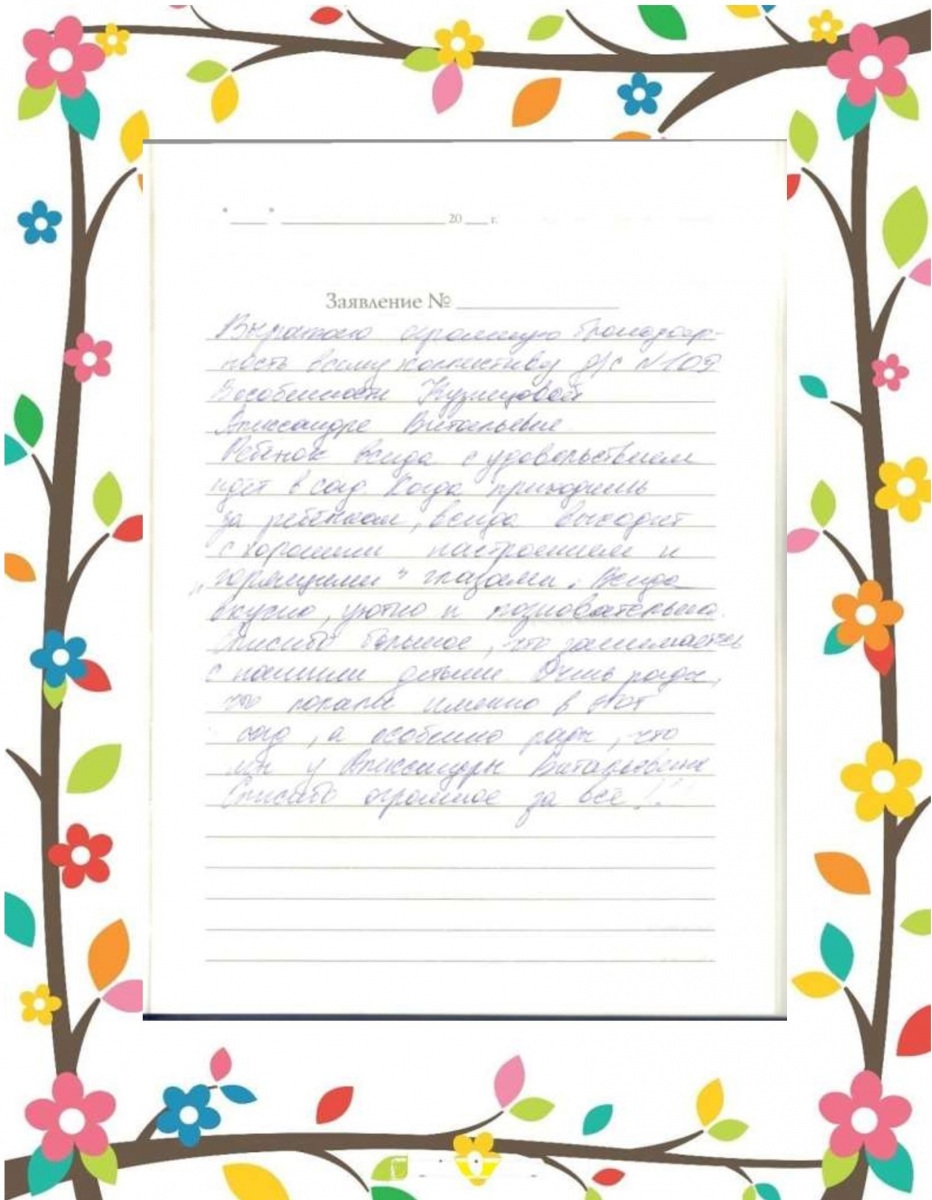 "___" ______________ 20 ___ г.
Заявление № ______________
Выражаю огромную благодар-
ность всему коллективу д/с №109
В особенности Кузнецовой
Александре Витальевне
Ребёнок всегда с удовольствием
идёт в сад. Когда приходишь
за ребёнком, всегда выходит
с хорошим настроением и
"горящими" глазами. Всегда
вкусно, уютно и познавательно.
Спасибо большое, что занимаетесь
с нашими детьми. Очень рады,
что попали именно в этот
сад, а особенно рады, что
мы у Александры Витальевны
Спасибо огромное за всё!!!